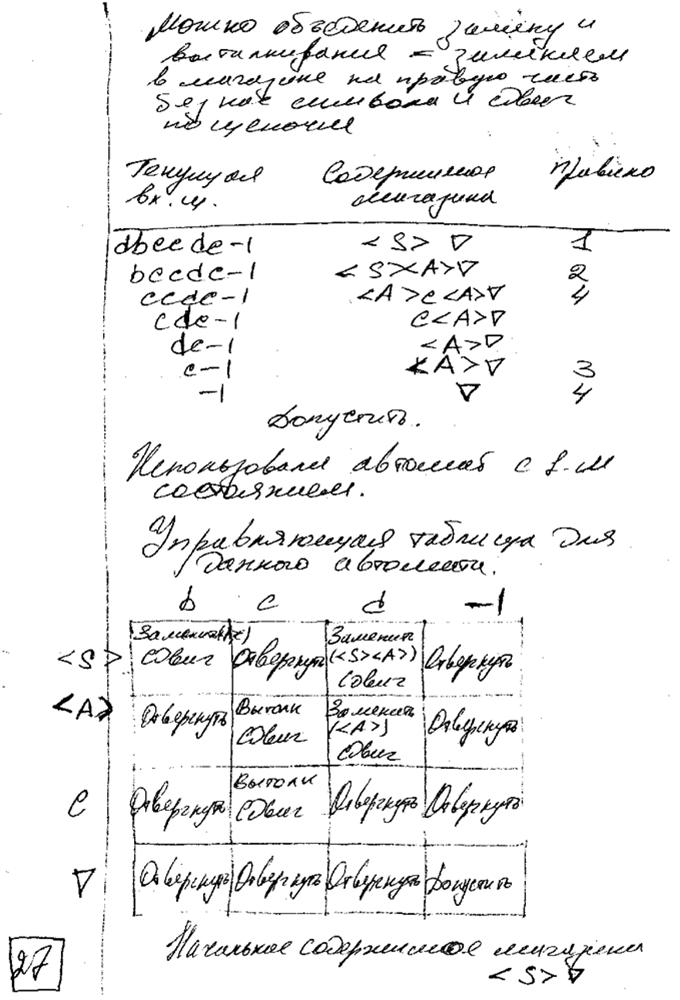 Можно объеденить замену и
выталкивания = заменяем
в магазине на правую часть
без нач символа и сдвиг
по цепочке
Текущая Содержимое Правило
вх. ц. магазина
dbccdc⊣ <S> ∇ 1
bccdc⊣ <S><A>∇ 2
ccdc⊣ <A>c<A>∇ 4
cdc⊣ c<A>∇
dc⊣ <A>∇
c⊣ <A>∇ 3
⊣ ∇ 4
Допустить.
Использовали автомат с 1-м
состоянием.
Управляющая таблица для
данного автомата.
b c d ⊣
<S> Заменить(<A>c) Сдвиг Отвергнуть Заменить (<S><A>) Сдвиг Отвергнуть
<A> Отвергнуть Вытолк Сдвиг Заменить (<A>) Сдвиг Отвергнуть
c Отвергнуть Вытолк Сдвиг Отвергнуть Отвергнуть
∇ Отвергнуть Отвергнуть Отвергнуть Допустить
Начальное содержимое магазина
<S>∇
27